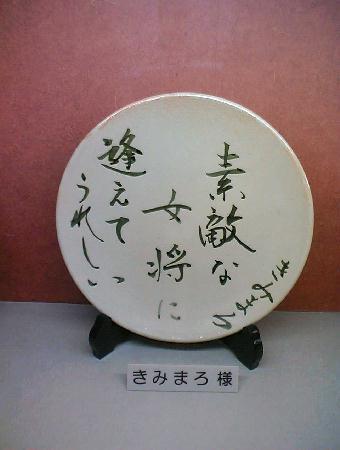 素敵な
女将に
逢えて
うれしい
きみまろ
きみまろ様